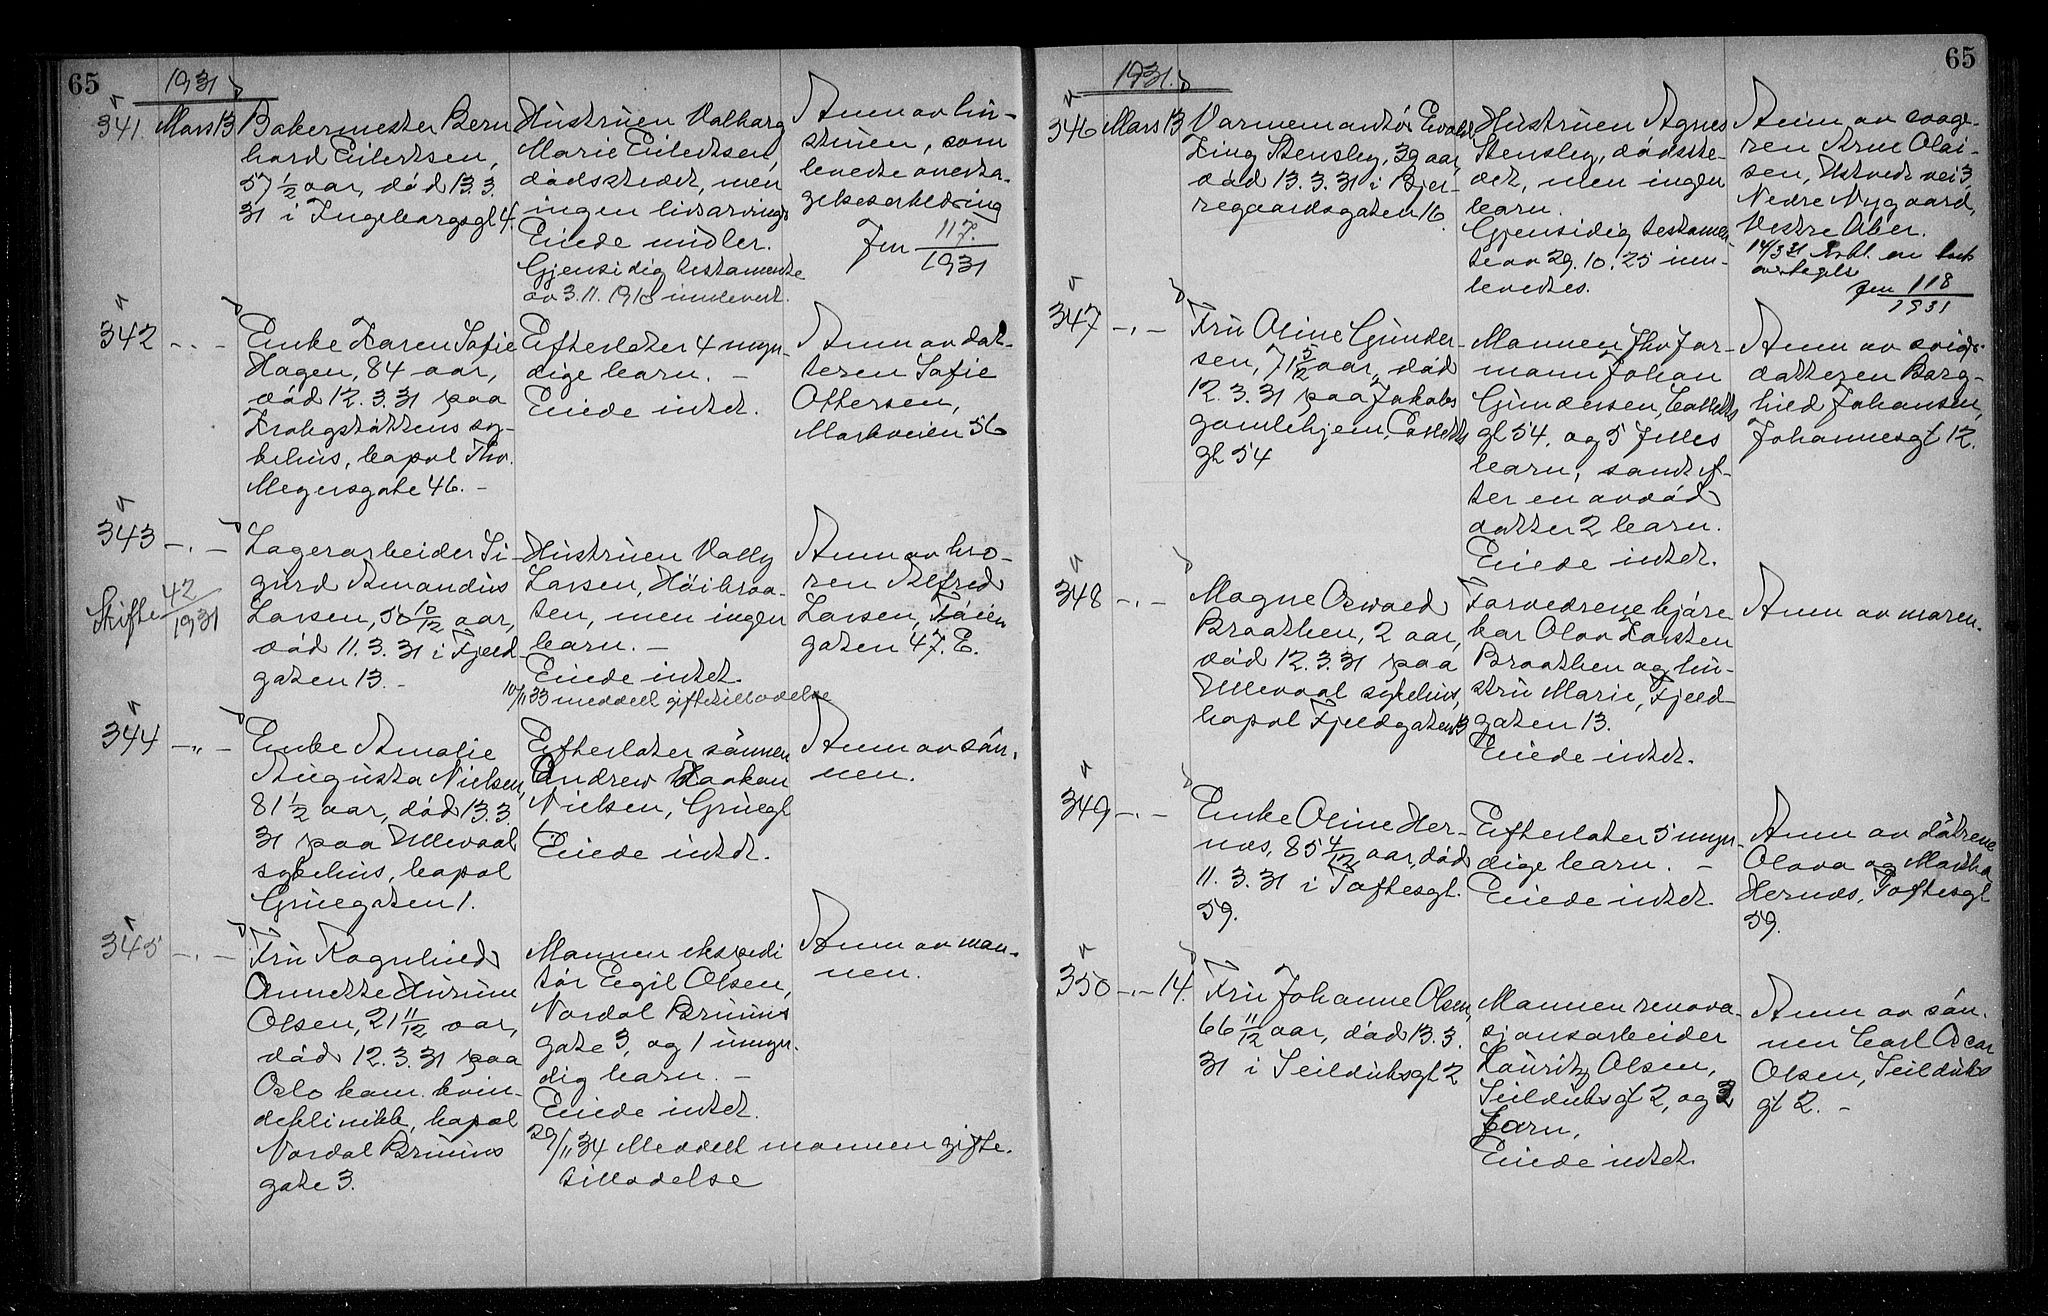 65
1931
341. Mars 13
Bakermester Bern
hard Eilertsen,
57 1/2 aar, död 13.3.
31 i Ingeborgsgt 4.
Hustruen Valborg
Marie Eilertsen,
dödsstedet, men
ingen livsarvinger
Eiede midler.
Gjensidig testamente
av 3.11.1918 innlevert.
Anm av hu-
struen, som
leverte overta-
gelseserklæring
Jnr 117.
1931
342 -.-
Enke Karen Sofie
Hagen, 84 aar,
död 12.3.31 paa
Krohgstöttens sy-
kehus, bopæl Thv.
Meyersgate 46. -
Efterlater 4 myn-
dige barn. -
Eiede intet.
Anm av dat-
teren Sofie
Ottersen,
Markveien 56
343 -.-
Skifte 42
1931
Lagerarbeider Si-
gurd Amandus
Larsen, 56 10/12 aar,
död 11.3.31 i Fjeld-
gaten 13. -
Hustruen Vally
Larsen, Höibraa-
ten, men ingen
barn. -
Eiede intet.
10/11 33 meddelt giftetilladelse
Anm av bro-
ren Alfred
Larsen, Töien
gaten 47. E.
344 -"-
Enke Amalie
Augusta Nielsen,
81 1/2 aar, död 13.3.
31 paa Ullevaal
sykehus, bopæl
Gruegaten 1.
Efterlater sönnen
Andrew Haakon
Nielsen, Gruegt
1.
Eiede intet.
Anm av sön-
nen.
345 -.-
Fru Ragnhild
Annette Hurum
Olsen, 21 11/12 aar,
död 12.3.31 paa
Oslo kom. kvin-
deklinikk, bopæl
Nordal Bruuns
gate 3.
Mannen ekspedi
tör Egil Olsen,
Nordal Bruuns
gate 3, og 1 umyn-
dig barn. -
Eiede intet.
29/11 34 Meddelt mannen gifte-
tilladelse
Anm av man-
nen.
65
1931.
346 Mars 13
Varmemontör Ewald
King Stensby, 39 aar,
död 13.3.31 i Bjer-
regaardsgaten 16.
Hustruen Agnes
Stensby, dödsste-
det, men ingen
barn.
Gjensidig testamen-
te av 29.10.25 inn-
levertes.
Anm av svoge-
ren Arne Olai-
sen, Ustvedt vei 3,
Nedre Nygaard,
Vestre Aker.
14/3 31
Jnr 118
1931
347 -.-
Fru Oline Gunder-
sen, 71 5/12 aar, död
12.3.31 paa Jakobs
gamlehjem, Colletts
gt 54
Mannen Fhv for-
mann Johan
Gundersen, Colletts
gt 54, og 5 felles
barn, samt ef-
ter en avdöd
datter 2 barn.
Eiede intet.
Anm av sviger-
datteren Borg-
hild Johansen,
Johannesgt 12.
348 -.-
Magne Oswald
Braathen, 2 aar,
död 12.3.31 paa
Ullevaal sykehus,
bopæl Fjeldgaten 13
Forældrene kjöre-
kar Olav Karsten
Braathen og hu-
stru Marie, Fjeld-
gaten 13.
Eiede intet.
Anm av moren.
349 -.-
Enke Oline Her-
næs, 85 4/12 aar, död
11.3.31 i Toftesgt.
59.
Efterlater 5 myn-
dige barn. -
Eiede intet.
Anm av dötrene
Olava og Martha
Hernæs, Toftesgt
59.
350 -.- 14.
Fru Johanne Olsen,
66 11/12 aar, död 13.3.
31 i Seilduksgt 2
Mannen renova-
sjonsarbeider
Lauritz Olsen,
Seilduksgt 2, og 3
barn.
Eiede intet.
Anm av sön-
nen Carl Oscar
Olsen, Seilduks
gt 2. -